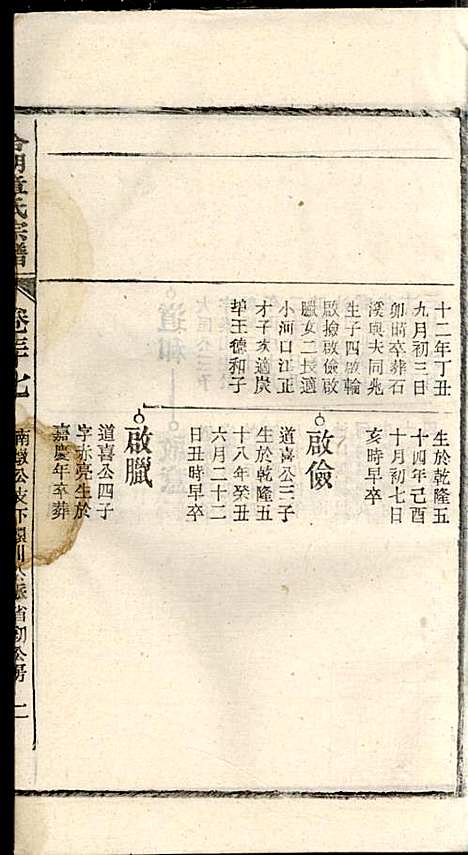 十二年丁丑
九月初三日
卯時卒葬石
溪與夫同兆
生子四啟輪
啟撿啟儉啟
臘女二長適
小河口江正
才子亥適炭
埠王德和子
生於乾隆五
十四年己酉
十月初七日
亥時早卒
啟儉
道喜公三子
生於乾隆五
十八年癸丑
六月二十二
日丑時早卒
啟臘
道喜公四子
字亦亮生於
嘉慶年卒葬
湖章氏宗譜
七
南 公支下 川公派省初公房 二